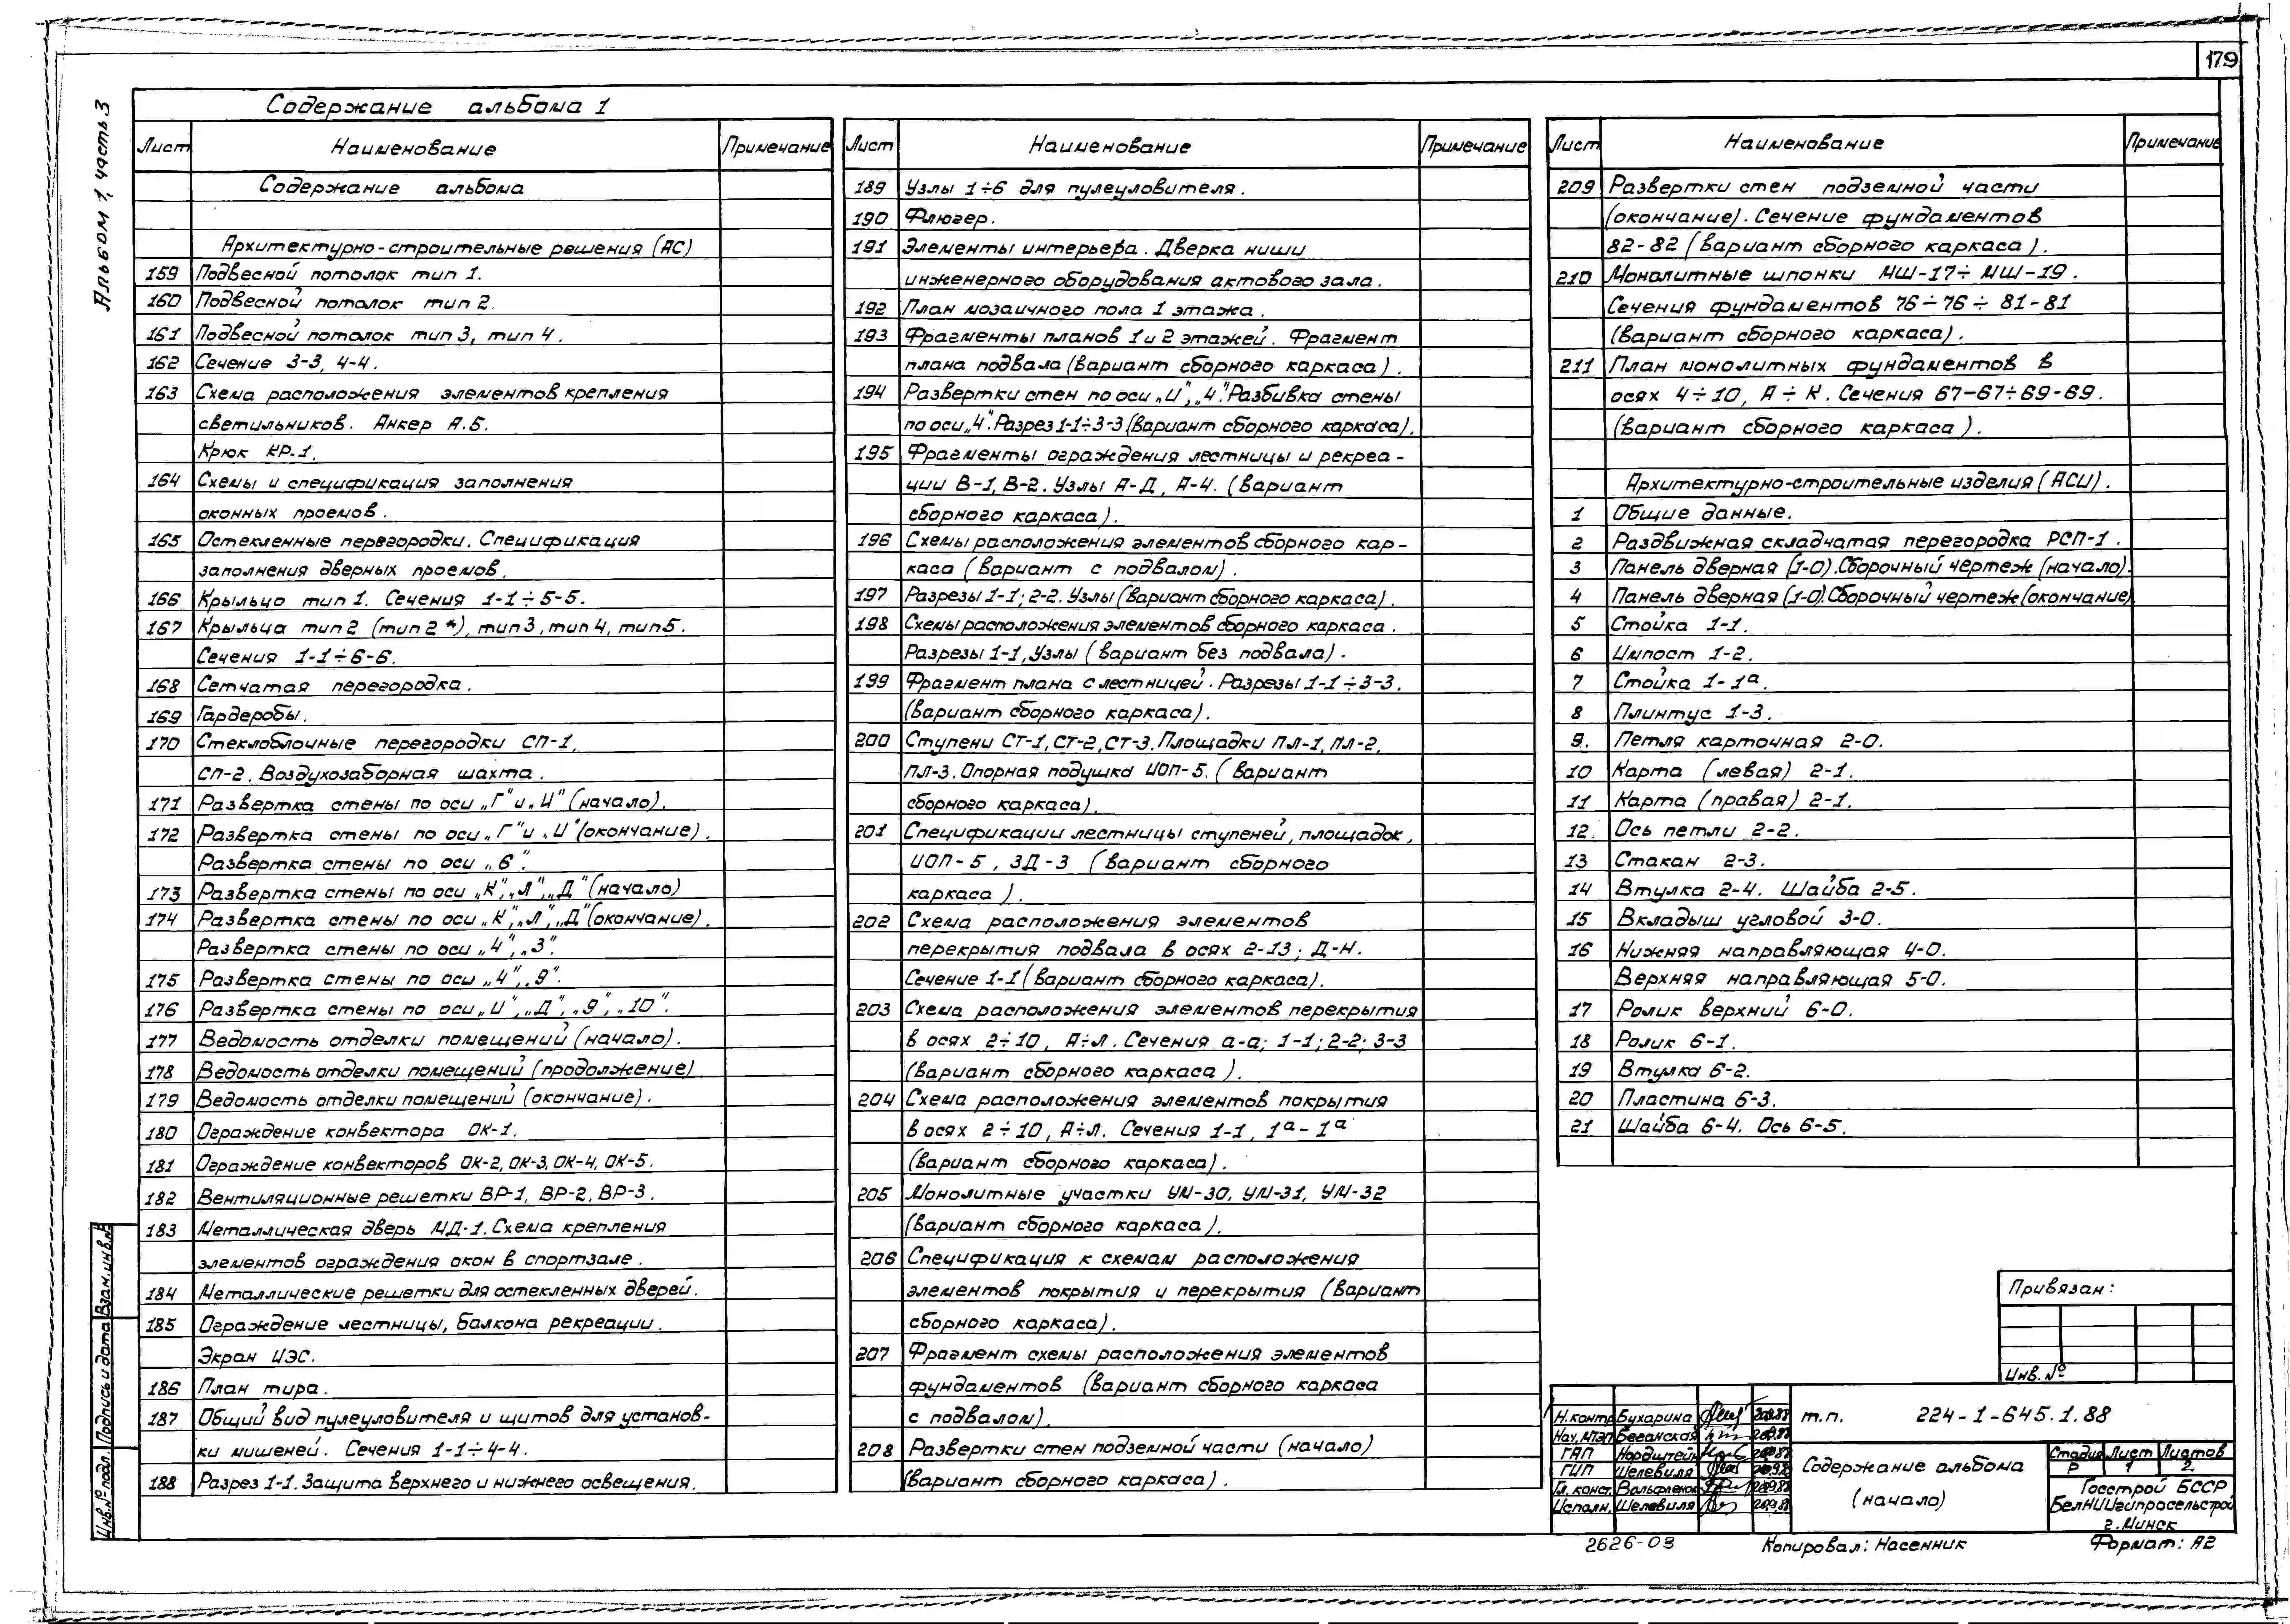 179
Альбом 1, часть 3
Содержание альбома 1
Лист Наименование Примечание
Содержание альбома
Архитектурно-строительные решения (АС)
159 Подвесной потолок тип 1.
160 Подвесной потолок тип 2.
161 Подвесной потолок тип 3, тип 4.
162 Сечение 3-3, 4-4.
163 Схема расположения элементов крепления
светильников. Анкер А.5.
Крюк КР-1.
164 Схемы и спецификация заполнения
оконных проемов.
165 Остекленные перегородки. Спецификация
заполнения дверных проемов.
166 Крыльцо тип 1. Сечения 1-1÷5-5.
167 Крыльца тип 2 (тип 2*), тип 3, тип 4, тип 5.
Сечения 1-1÷6-6.
168 Сетчатая перегородка.
169 Гардеробы.
170 Стеклоблочные перегородки СП-1,
СП-2. Воздухозаборная шахта.
171 Развертка стены по оси „Г" и „И" (начало).
172 Развертка стены по оси „Г" и „И" (окончание).
Развертка стены по оси „6".
173 Развертка стены по оси „К", „Л", „Д" (начало)
174 Развертка стены по оси „К", „Л", „Д" (окончание).
Развертка стены по оси „4", „3".
175 Развертка стены по оси „4", „9".
176 Развертка стены по оси „И", „Д", „9", „10".
177 Ведомость отделки помещений (начало).
178 Ведомость отделки помещений (продолжение)
179 Ведомость отделки помещений (окончание).
180 Ограждение конвектора ОК-1.
181 Ограждение конвекторов ОК-2, ОК-3, ОК-4, ОК-5.
182 Вентиляционные решетки ВР-1, ВР-2, ВР-3.
183 Металлическая дверь МД-1. Схема крепления
элементов ограждения окон в спортзале.
184 Металлические решетки для остекленных дверей.
185 Ограждение лестницы, балкона рекреации.
Экран ИЭС.
186 План тира.
187 Общий вид пулеуловителя и щитов для установ-
ки мишеней. Сечения 1-1÷4-4.
188 Разрез 1-1. Защита верхнего и нижнего освещения.
Лист Наименование Примечание
189 Узлы 1÷6 для пулеуловителя.
190 Флюгер.
191 Элементы интерьера. Дверка ниши
инженерного оборудования актового зала.
192 План мозаичного пола 1 этажа.
193 Фрагменты планов 1 и 2 этажей. Фрагмент
плана подвала (вариант сборного каркаса).
194 Развертки стен по оси „И", „4". Разбивка стены
по оси „4". Разрез 1-1÷3-3 (вариант сборного каркаса).
195 Фрагменты ограждения лестницы и рекреа-
ции В-1, В-2. Узлы А-Д, А-4. (вариант
сборного каркаса).
196 Схемы расположения элементов сборного кар-
каса (вариант с подвалом).
197 Разрезы 1-1; 2-2. Узлы (вариант сборного каркаса).
198 Схемы расположения элементов сборного каркаса.
Разрезы 1-1, Узлы (вариант без подвала).
199 Фрагмент плана с лестницей. Разрезы 1-1÷3-3.
(вариант сборного каркаса).
200 Ступени СТ-1, СТ-2, СТ-3. Площадки ПЛ-1, ПЛ-2,
ПЛ-3. Опорная подушка ИОП-5. (вариант
сборного каркаса).
201 Спецификации лестницы ступеней, площадок,
ИОП-5, ЗД-3 (вариант сборного
каркаса).
202 Схема расположения элементов
перекрытия подвала в осях 2-13; Д-Н.
Сечение 1-1 (вариант сборного каркаса).
203 Схема расположения элементов перекрытия
в осях 2÷10, А÷Л. Сечения а-а; 1-1; 2-2; 3-3
(вариант сборного каркаса).
204 Схема расположения элементов покрытия
в осях 2÷10, А÷Л. Сечения 1-1, 1а-1а
(вариант сборного каркаса).
205 Монолитные участки УМ-30, УМ-31, УМ-32
(вариант сборного каркаса).
206 Спецификация к схемам расположения
элементов покрытия и перекрытия (вариант
сборного каркаса).
207 Фрагмент схемы расположения элементов
фундаментов (вариант сборного каркаса
с подвалом).
208 Развертки стен подземной части (начало)
(вариант сборного каркаса).
Лист Наименование Примечание
209 Развертки стен подземной части
(окончание). Сечение фундаментов
82-82 (вариант сборного каркаса).
210 Монолитные шпонки МШ-17÷МШ-19.
Сечения фундаментов 76÷76÷81-81
(вариант сборного каркаса).
211 План монолитных фундаментов в
осях 4÷10, А÷К. Сечения 67-67÷69-69.
(вариант сборного каркаса).
Архитектурно-строительные изделия (АСИ).
1 Общие данные.
2 Раздвижная складчатая перегородка РСП-1.
3 Панель дверная (1-0). Сборочный чертеж (начало).
4 Панель дверная (1-0). Сборочный чертеж (окончание)
5 Стойка 1-1.
6 Импост 1-2.
7 Стойка 1-1а.
8 Плинтус 1-3.
9. Петля карточная 2-0.
10 Карта (левая) 2-1.
11 Карта (правая) 2-1.
12. Ось петли 2-2.
13 Стакан 2-3.
14 Втулка 2-4. Шайба 2-5.
15 Вкладыш угловой 3-0.
16 Нижняя направляющая 4-0.
Верхняя направляющая 5-0.
17 Ролик верхний 6-0.
18 Ролик 6-1.
19 Втулка 6-2.
20 Пластина 6-3.
21 Шайба 6-4. Ось 6-5.
Привязан:
Инв. №
Н.контр. Бухарина
Нач. МТЭП
ГАП Нордштейн
ГИП Шелевиля
Гл. конст.
Исполн. Шелевиля
т.п. 224-1-645.1.88
Содержание альбома
(начало)
Стадия Лист Листов
Р 1 2
Госстрой БССР
БелНИИгипросельстрой
г. Минск
2626-03 Копировал: Насенник Формат: А2
Взам. инв. №
Подпись и дата
Инв. № подл.